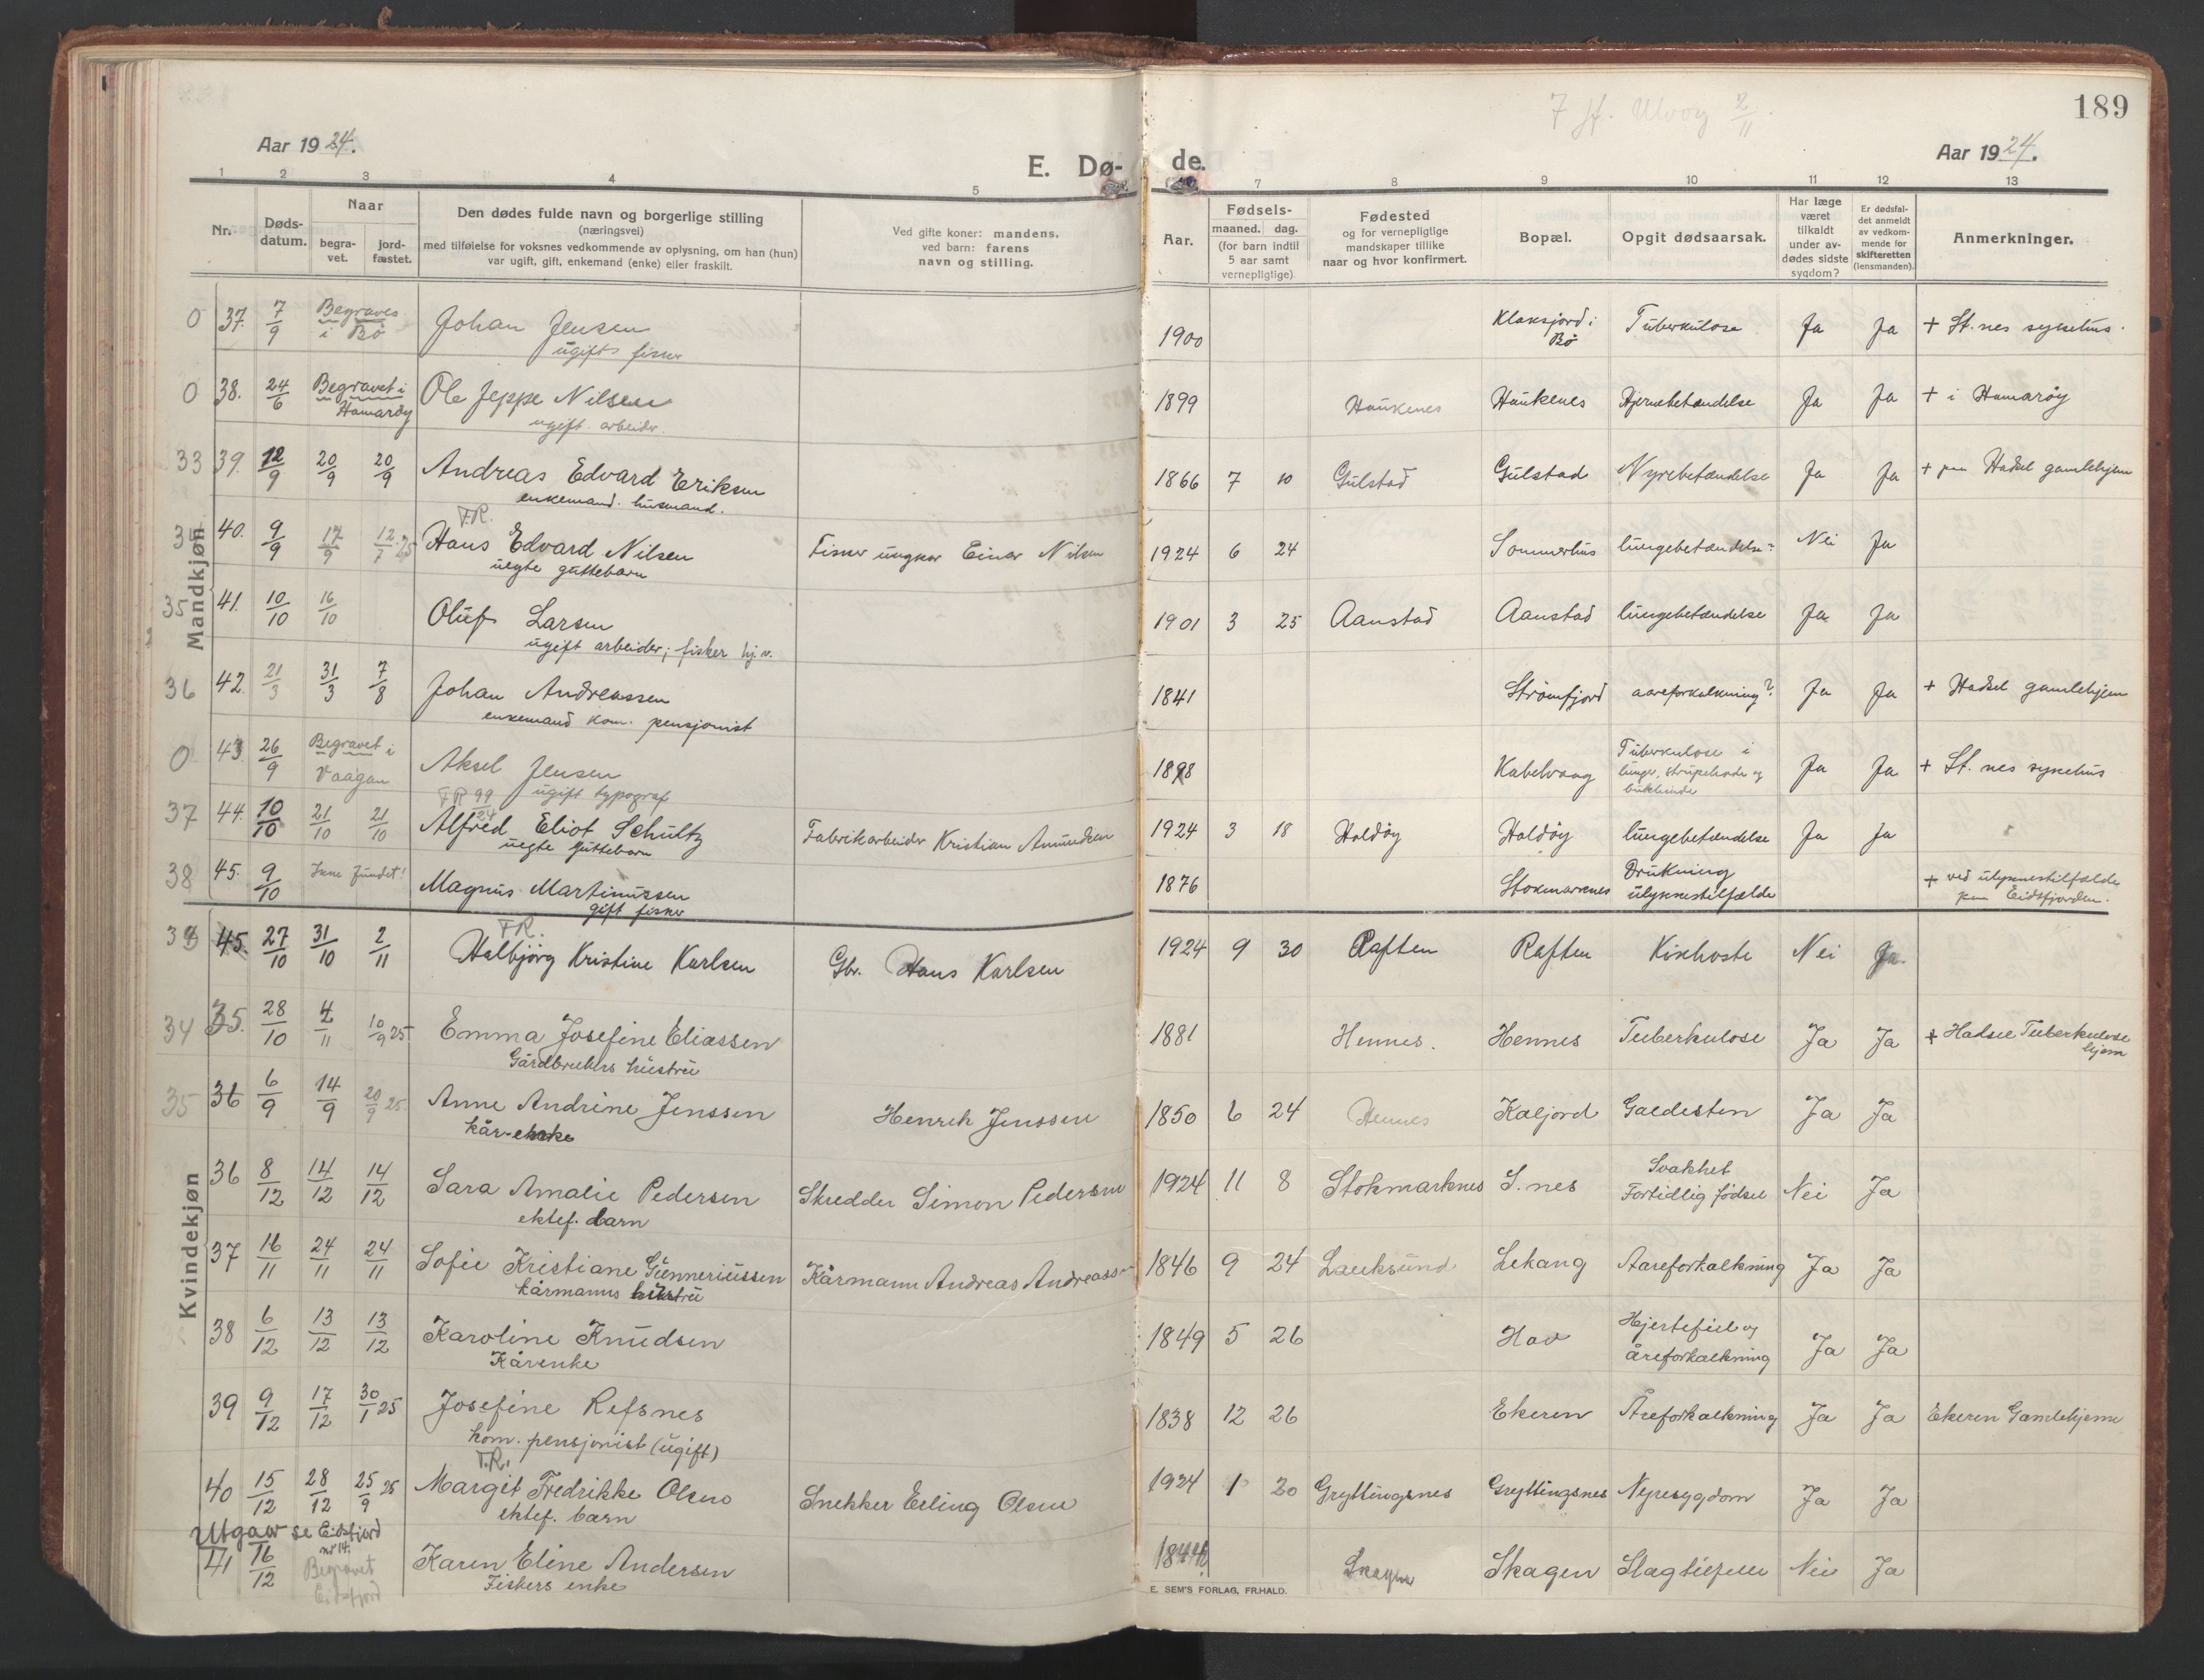 7 Ulvøy 2/11
189
Aar 1924.
E. Dø-
de.
Aar 1924.
1 2 3 4 5 7 8 9 10 11 12 13
Nr.
Døds-
datum.
Naar
begra-
vet.
jord-
fæstet.
Den dødes fulde navn og borgerlige stilling
(næringsvei)
med tilføielse for voksnes vedkommende av oplysning, om han (hun)
var ugift, gift, enkemand (enke) eller fraskilt.
Ved gifte koner: mandens,
ved barn: farens
navn og stilling.
Aar.
Fødsels-
maaned. dag.
(for barn indtil
5 aar samt
vernepligtige)
Fødested
og for vernepligtige
mandskaper tillike
naar og hvor konfirmert.
Bopæl.
Opgit dødsaarsak.
Har læge
været
tilkaldt
under av-
dødes sidste
sygdom?
Er dødsfal-
det anmeldt
av vedkom-
mende for
skifteretten
(lensmanden).
Anmerkninger.
Mandkjøn
0 37. 7/9 Begraves i Bø Johan Jensen 1900 Klaksjord i Bø Tuberkulose Ja Ja + St.nes sykehus.
ugift fisker
0 38. 24/6 Begravet i Hamarøy Ole Jeppe Nilsen 1899 Haukenes Haukenes Hjernebetændelse Ja Ja + i Hamarøy
ugift arbeider.
33 39. 12/9 20/9 20/9 Andreas Edvard Eriksen 1866 7 10 Gulstad Gulstad Nyrebetændelse Ja Ja + paa Hadsel gamlehjem
enkemand. husmand.
F.R.
40. 9/9 17/9 12/7 25 Hans Edvard Nilsen Fisker ungkar Einar Nilsen 1924 6 24 Sommerhus lungebetændelse? Nei Ja
uegte guttebarn
35 41. 10/10 16/10 Oluf Larsen 1901 3 25 Aanstad Aanstad lungebetændelse Ja Ja
ugift arbeider; fisker hj. v.
36 42. 21/3 31/3 7/8 Johan Andreassen 1841 Strømfjord aareforkalkning? Ja Ja + Hadsel gamlehjem
enkemand kom. pensjonist
0 43. 26/9 Begravet i Vaagan Aksel Jensen 1898 Kabelvaag Tuberkulose i lunger, strupehode og bukhinde Ja Ja + St. nes sykehus
ugift typograf
FR 99/24
37 44. 10/10 21/10 21/10 Alfred Eliot Schultz Fabrikarbeider Kristian Amundsen 1924 3 18 Haldøy Haldøy lungebetændelse Ja Ja
uegte guttebarn
38 45. 9/10 Ikke fundet! Magnus Martinussen 1876 Stokmarknes Drukning ulykkestilfælde + ved ulykkestilfælde paa Eidsfjorden.
gift fisker
Kvindekjøn
F.R.
45. 27/10 31/10 2/11 Halbjörg Kristine Karlsen Gbr. Hans Karlsen 1924 9 30 Raften Raften Kikhoste Nei Ja.
34 35. 28/10 4/11 10/9 25 Emma Josefine Eliassen 1881 Hennes. Hennes Tuberkulose Ja Ja + Hadsel Tuberkulosehjem
Gårdbrukers hustru
35 36 6/9 14/9 20/9 25. Anne Andrine Jenssen Henrik Jenssen 1850 6 24 Hennes Kaljord Galdesten Ja Ja
kår-enke
36 8/12 14/12 14/12 Sara Amalie Pedersen Skredder Simon Pedersen 1924 11 8 Stokmarknes S.nes Svakhet Fortidlig fødsel Nei Ja
ektef. barn
37 16/11 24/11 24/11 Sofie Kristiane Gunneriussen Kårmann Andreas Andreassen 1846 9 24 Lauksund Lekang Aareforkalkning Ja Ja
kårmanns hustru
38 6/12 13/12 13/12 Karoline Knudsen 1849 5 26 Hav Hjertefeil og åreforkalkning Ja Ja
Kårenke
39 9/12 17/12 30/1 25 Josefine Refsnes 1838 12 26 Ekeren Åreforkalkning Ja Ja Ekeren Gamlehjem
kom. pensjonist (ugift)
F.R.
40 15/12 28/12 25/9 25 Margit Fredrikke Olsen Snekker Erling Olsen 1924 1 20 Gryttingsnes Gryttingsnes Nyresygdom Ja Ja
ektef. barn
Utgaar se Eidsfjord nr 14.
41 16/12 Begravet Eidsfjord Karen Eline Andersen Skagen Skagen Slagtilfelle Nei Ja
Fiskers enke
E. SEM'S FORLAG, FR.HALD.